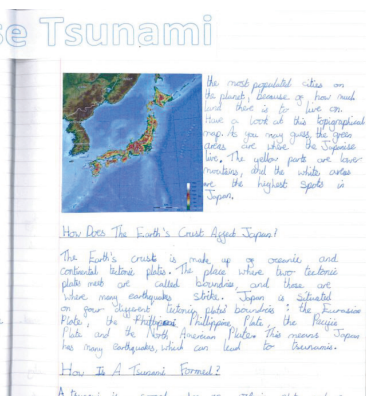 se Tsunami
the most populated cities on
the planet, because of how much
land there is to live on.
Have a look at this topigraphical
map. As you may guess, the green
areas are where the Japinise
live. The yellow parts are lower
mountains, and the white areas
are the highest spots in
Japan.
How Does The Earth's Crust Affect Japan?
The Earth's crust is make up of oceanic and
continental tectonic plates. The place where two tectonic
plates meet are called boundries, and these are
where many earthquakes strike. Japan is situated
on four different tectonic plates' boundries: the Eurasine
Plate, the Phillipine Plate, the Pacific
Plate and the North American Plate. This means Japan
has many earthquakes, which can lead to tsunamis.
How Is A Tsunami Formed?
A tsunami is